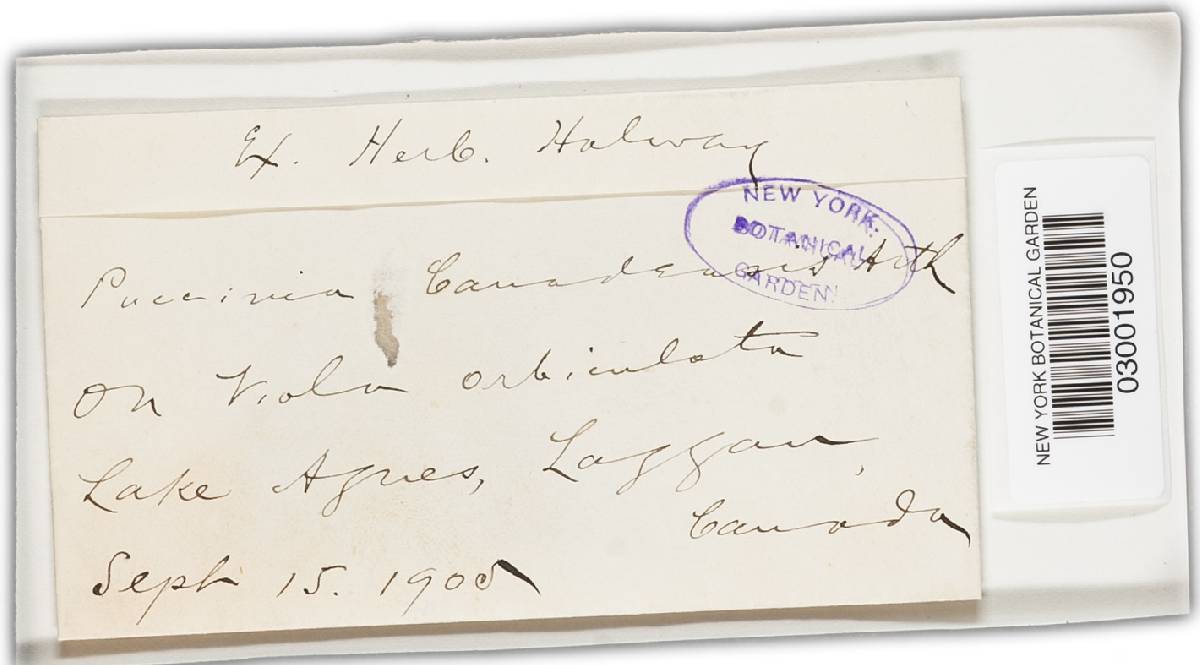 Ex. Herb. Holway
NEW YORK
BOTANICAL
GARDEN
Puccinia Canadensis Arth
On Viola orbiculata
Lake Agnes, Laggan,
Canada
Sept 15. 1905
NEW YORK BOTANICAL GARDEN
03001950